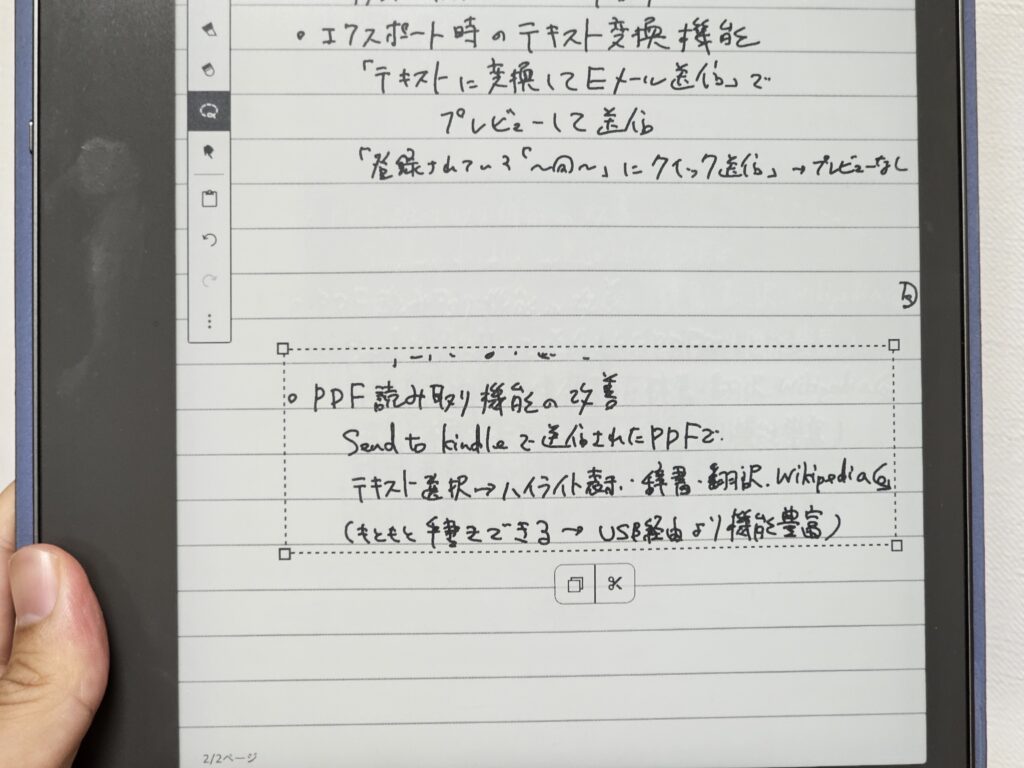 • エクスポート時のテキスト変換機能
「テキストに変換してEメール送信」で
プレビューして送信
「登録されている「～の～」にクイック送信」→プレビューなし
• PDF読み取り機能の改善
Send to kindleで送信されたPDFで
テキスト選択→ハイライト表示・辞書・翻訳・Wikipedia
(もともと手書きできる→USB経由より機能豊富)
2/2ページ